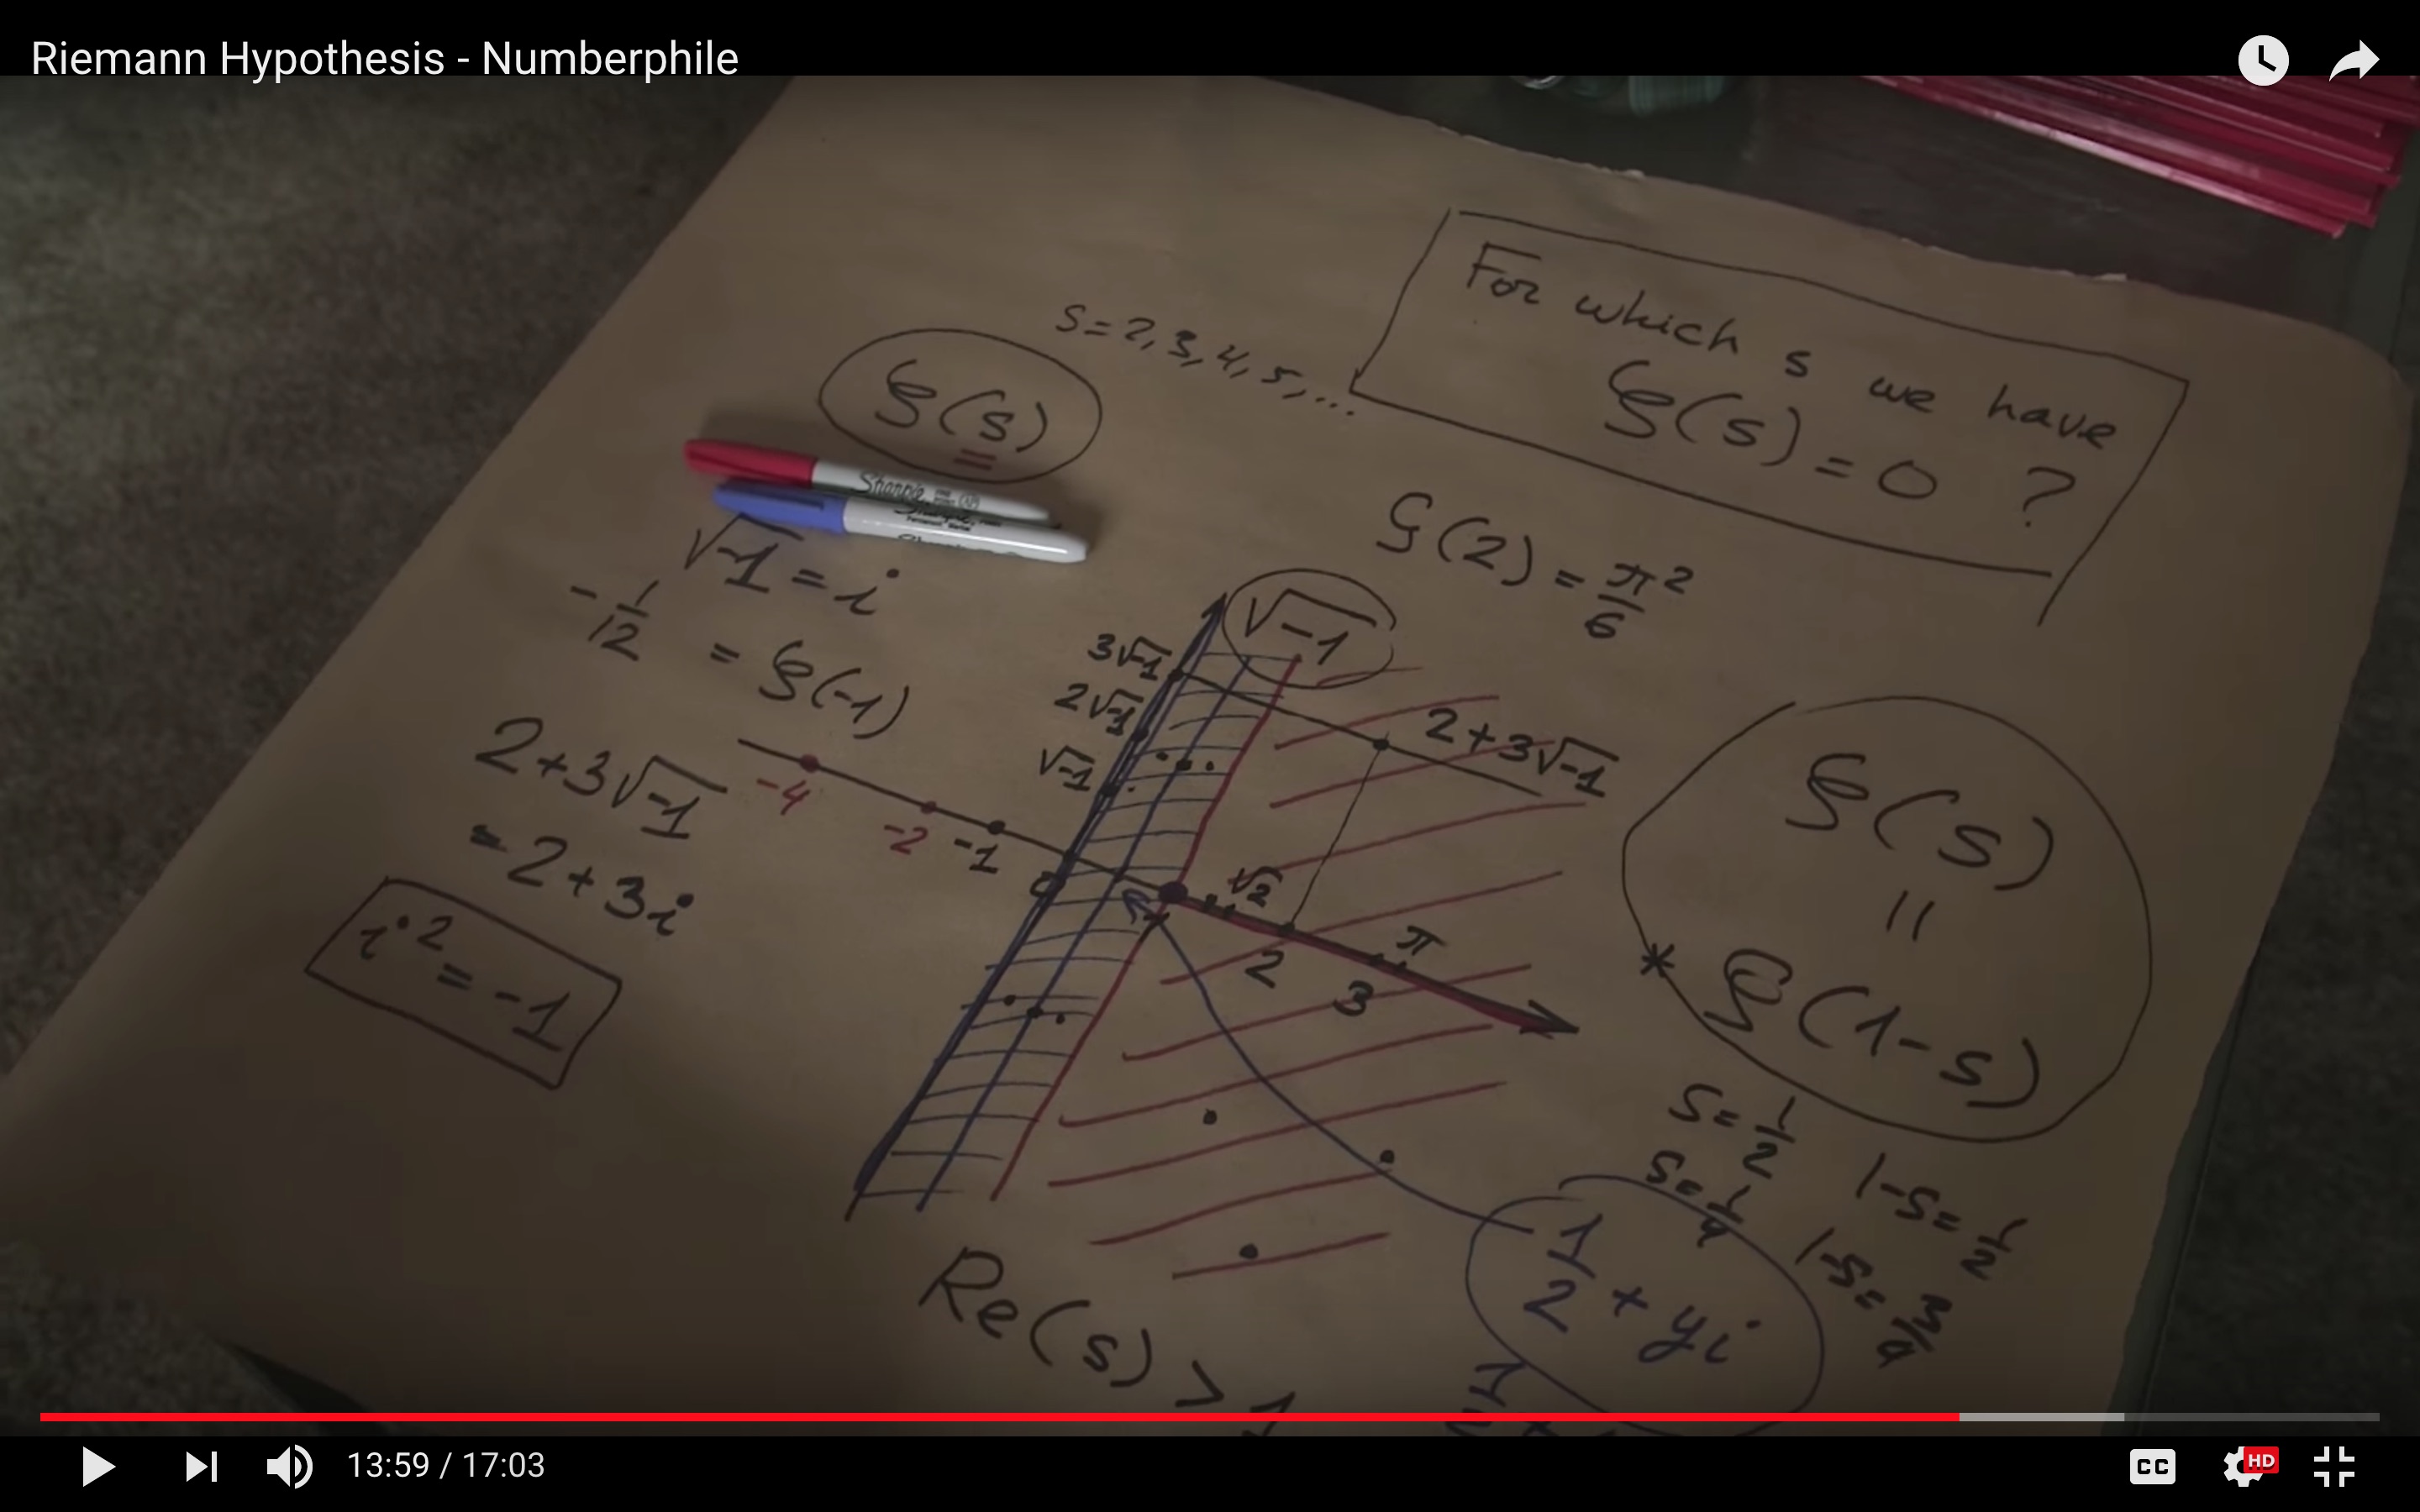 Riemann Hypothesis - Numberphile
For which s we have
ζ(s) = 0 ?
s=2,3,4,5,...
ζ(s)
=
Sharpie
Sharpie
√-1 = i
ζ(2) = π²/6
-1/12 = ζ(-1)
√-1
3√-1
2√-1
√-1
2+3√-1
2+3√-1
= 2+3i
i² = -1
-4
-2
-1
0
1
√2
2
3
π
ζ(s)
=
* ζ(1-s)
s=1/2 1-s=1/2
s=1/4 1-s=3/4
1/2 + yi
Re(s) > 1
13:59 / 17:03
CC
HD